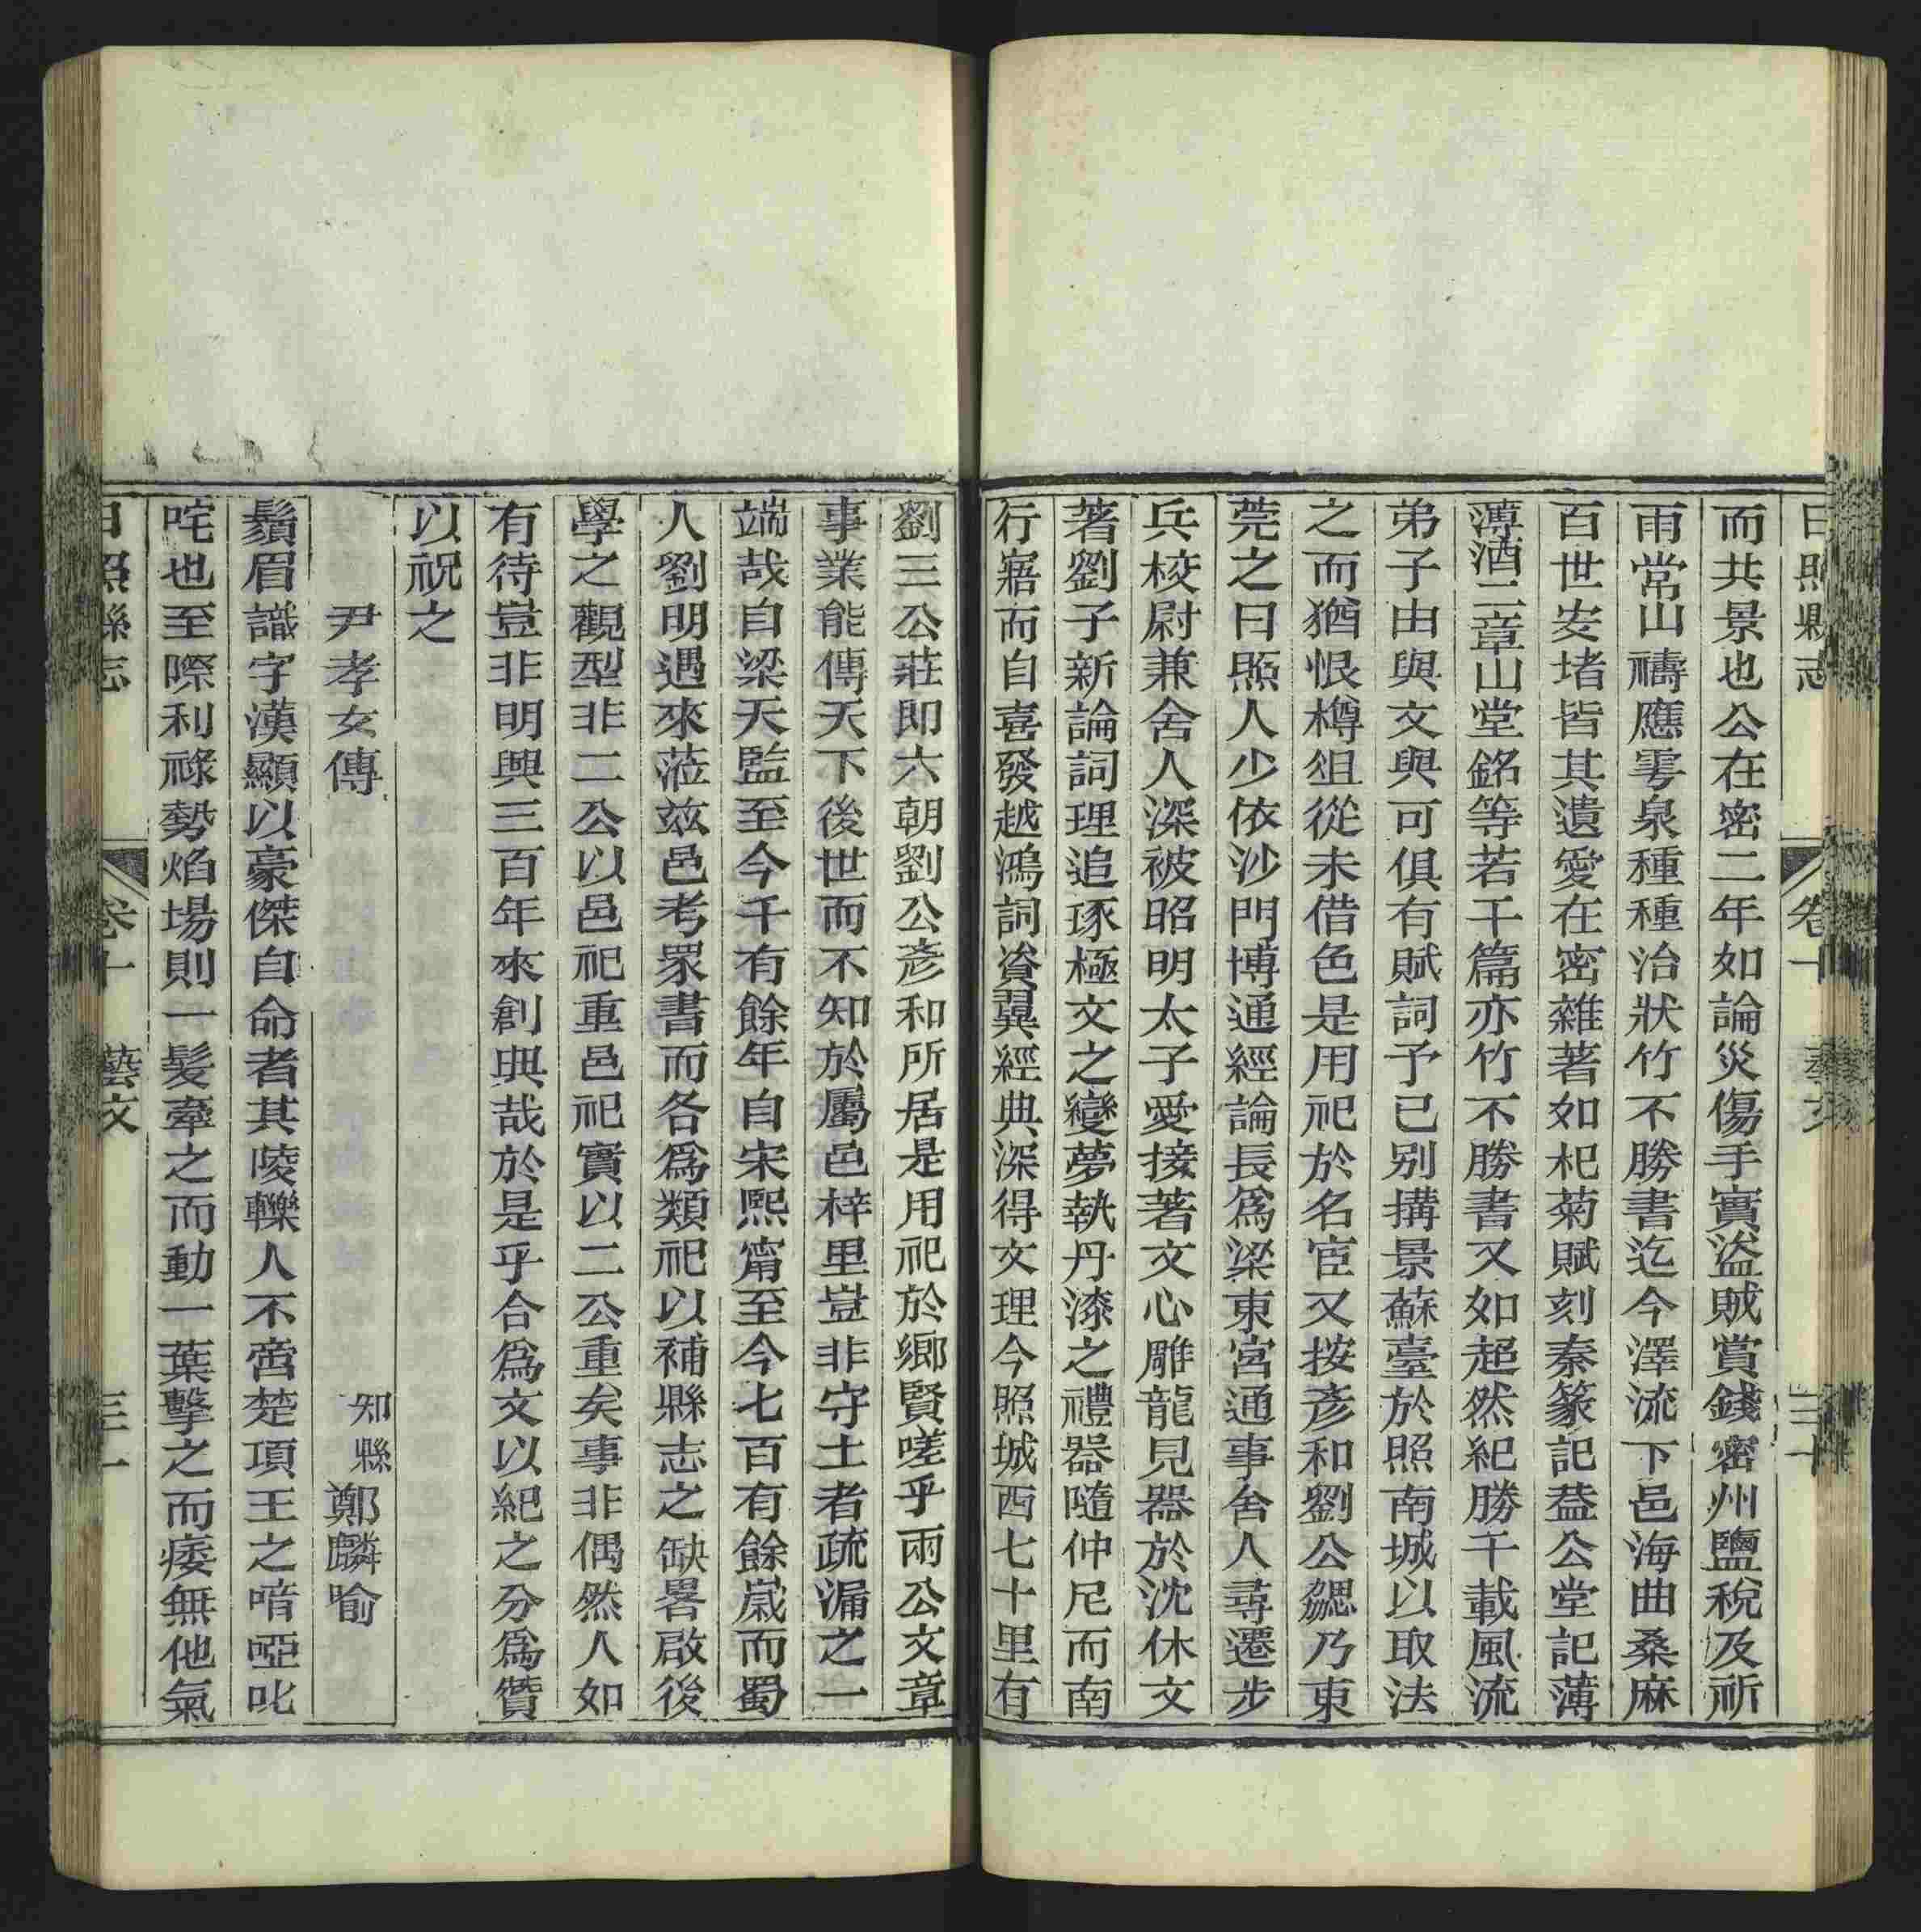 日照縣志 卷十 藝文 三十
而共景也公在密二年如論災傷手實盜賊賞錢密州鹽稅及祈
雨常山禱應雩泉種種治狀竹不勝書迄今澤流下邑海曲桑麻
百世安堵皆其遺愛在密雜著如杞菊賦刻秦篆記葢公堂記薄
薄酒二章山堂銘等若干篇亦竹不勝書又如超然紀勝千載風流
弟子由與文與可俱有賦詞予已別搆景蘇臺於照南城以取法
之而猶恨樽俎從未借色是用祀於名宦又按彥和劉公勰乃東
莞之日照人少依沙門博通經論長爲梁東宮通事舍人尋遷步
兵校尉兼舍人深被昭明太子愛接著文心雕龍見器於沈休文
著劉子新論詞理追琢極文之變夢執丹漆之禮器隨仲尼而南
行寤而自喜發越鴻詞資翼經典深得文理今照城西七十里有
劉三公莊即六朝劉公彥和所居是用祀於鄉賢嗟乎兩公文章
事業能傳天下後世而不知於屬邑梓里豈非守土者疏漏之一
端哉自梁天監至今千有餘年自宋熙甯至今七百有餘歲而蜀
人劉明遇來蒞玆邑考眾書而各爲類祀以補縣志之缺畧啟後
學之觀型非二公以邑祀重邑祀實以二公重矣事非偶然人如
有待豈非明興三百年來創典哉於是乎合爲文以紀之分爲贊
以祝之
尹孝女傳 知縣鄭麟喻
鬚眉識字漢顯以豪傑自命者其唛轢人不啻楚項王之喑啞叱
咤也至際利祿勢焰場則一髮牽之而動一葉擊之而痿無他氣
日照縣志 卷十 藝文 三十一